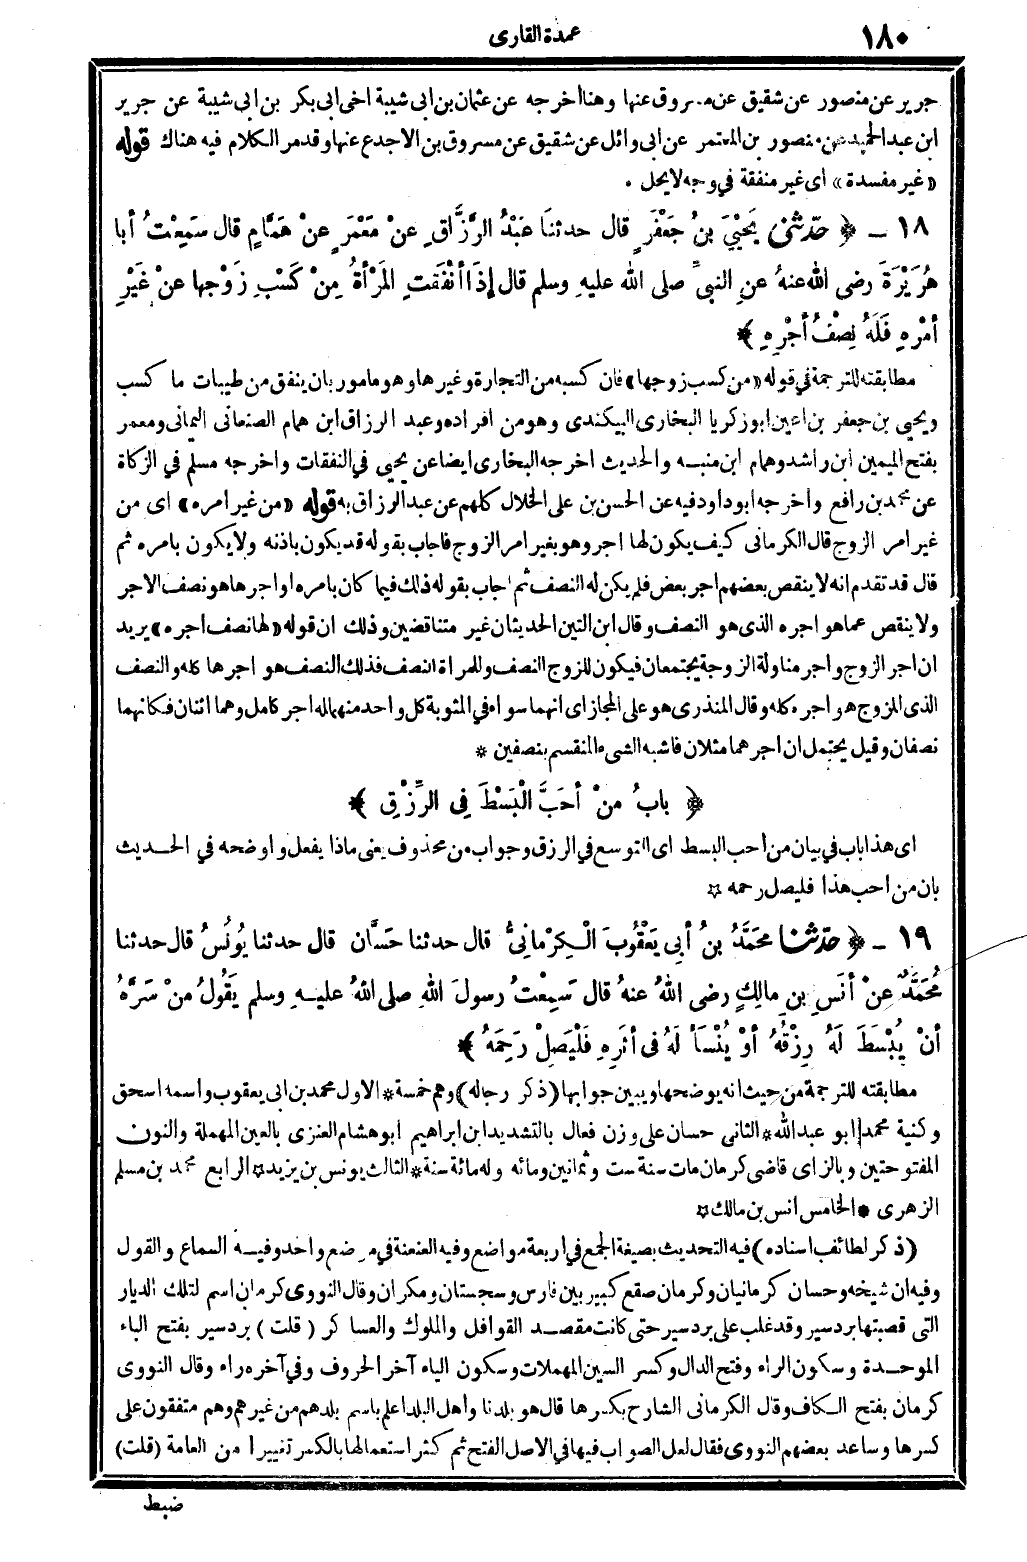 ١٨٠
عمدة القارى
جرير عن منصور عن شقيق عن مسروق عنها وهنا أخرجه عن عثمان بن ابى شيبة اخى ابى بكر بن ابى شيبة عن جرير
ابن عبد الحميد عن منصور بن المعتمر عن ابى وائل عن شقيق عن مسروق بن الاجدع عنها وقد مر الكلام فيه هناك قوله
«غير مفسدة» اى غير منفقة في وجه لا يحل .
١٨ - ﴿ حدّثنى يَحْيَى بنُ جَعْفَرٍ قال حدثنا عَبْدُ الرَّزَّاقِ عنْ مَعْمَرٍ عنْ هَمَّامٍ قال سَمِعْتُ أبا
هُرَيْرَةَ رضى اللهُ عنهُ عنِ النبىِّ صلى اللهُ عليهِ وسلم قال إذَا أنْفَقَتِ المَرْأةُ مِنْ كَسْبِ زَوْجِها عنْ غَيْرِ
أمْرِهِ فَلَهُ نِصْفُ أجْرِهِ ﴾
مطابقته للترجمة في قوله «من كسب زوجها» فان كسبه من التجارة وغيرها وهو مامور بان ينفق من طيبات ما كسب
ويحيى بن جعفر بن اعين ابو زكريا البخارى البيكندى وهو من افراده وعبد الرزاق ابن همام الصنعانى اليمانى ومعمر
بفتح الميمين ابن راشد وهمام ابن منبه والحديث اخرجه البخارى ايضا عن يحيى في النفقات واخرجه مسلم في الزكاة
عن محمد بن رافع وأخرجه ابو داود فيه عن الحسن بن على الخلال كلهم عن عبد الرزاق به قوله «من غير امره» اى من
غير امر الزوج قال الكرمانى كيف يكون لها اجر وهو بغير امر الزوج فاجاب بقوله قد يكون باذنه ولا يكون بامره ثم
قال قد تقدم انه لا ينقص بعضهم اجر بعض فلم يكن له النصف ثم اجاب بقوله ذلك فيما كان بامره او اجرها هو نصف الاجر
ولا ينقص عما هو اجره الذى هو النصف وقال ابن التين الحديثان غير متناقضين وذلك ان قوله «لها نصف اجره» يريد
ان اجر الزوج واجر مناولة الزوجة يجتمعان فيكون للزوج النصف وللمرأة النصف فذلك النصف هو اجرها كله والنصف
الذى للزوج هو اجره كله وقال المنذرى هو على المجاز اى انهما سواء في المثوبة كل واحد منهما له اجر كامل وهما اثنان فكانهما
نصفان وقيل يحتمل ان اجرهما مثلان فاشبه الشىء المنقسم بنصفين *
﴿ بابُ منْ أحَبَّ الْبَسْطَ فِى الرِّزْقِ ﴾
اى هذا باب في بيان من أحب البسط اى التوسع في الرزق وجواب من محذوف يعنى ماذا يفعل واوضحه في الحديث
بان من احب هذا فليصل رحمه ☆
١٩ - ﴿ حدّثنا محمَّدُ بنُ أبى يَعْقُوبَ الْكِرْمانِىُّ قال حدثنا حَسَّان قال حدثنا يُونُسُ قال حدثنا
مُحَمَّدٌ عنْ أنَسِ بنِ مالِكٍ رضى اللهُ عنهُ قال سَمِعْتُ رسولَ اللهِ صلى اللهُ عليهِ وسلم يَقُولُ منْ سَرَّهُ
أنْ يُبْسَطَ لَهُ رِزْقُهُ أوْ يُنْسَأَ لَهُ فى أثَرِهِ فَلْيَصِلْ رَحِمَهُ ﴾
مطابقته للترجمة من حيث انه يوضحها ويبين جوابها (ذكر رجاله) وهم خمسة * الاول محمد بن ابى يعقوب واسمه اسحق
وكنية محمد ابو عبد الله * الثانى حسان على وزن فعال بالتشديد ابن ابراهيم ابو هشام العنزى بالعين المهملة والنون
المفتوحتين وبالزاى قاضى كرمان مات سنة ست وثمانين ومائه وله مائة سنة * الثالث يونس بن يزيد ☆ الرابع محمد بن مسلم
الزهرى * الخامس انس بن مالك ☆
(ذكر لطائف اسناده) فيه التحديث بصيغة الجمع في اربعة مواضع وفيه العنعنة في موضع واحد وفيه السماع والقول
وفيه ان شيخه وحسان كرمانيان وكرمان صقع كبير بين فارس وسجستان ومكران وقال النووى كرمان اسم لتلك الديار
التى قصبتها بردسير وقد غلب على بردسير حتى كانت مقصد القوافل والملوك والعساكر (قلت) بردسير بفتح الباء
الموحدة وسكون الراء وفتح الدال وكسر السين المهملات وسكون الياء آخر الحروف وفي آخره راء وقال النووى
كرمان بفتح الكاف وقال الكرمانى الشارح بكسرها قال هو بلدنا واهل البلد اعلم باسم بلدهم من غيرهم وهم متفقون على
كسرها وساعد بعضهم النووى فقال لعل الصواب فيها في الاصل الفتح ثم كثر استعمالها بالكسر تغييرا من العامة (قلت)
ضبط